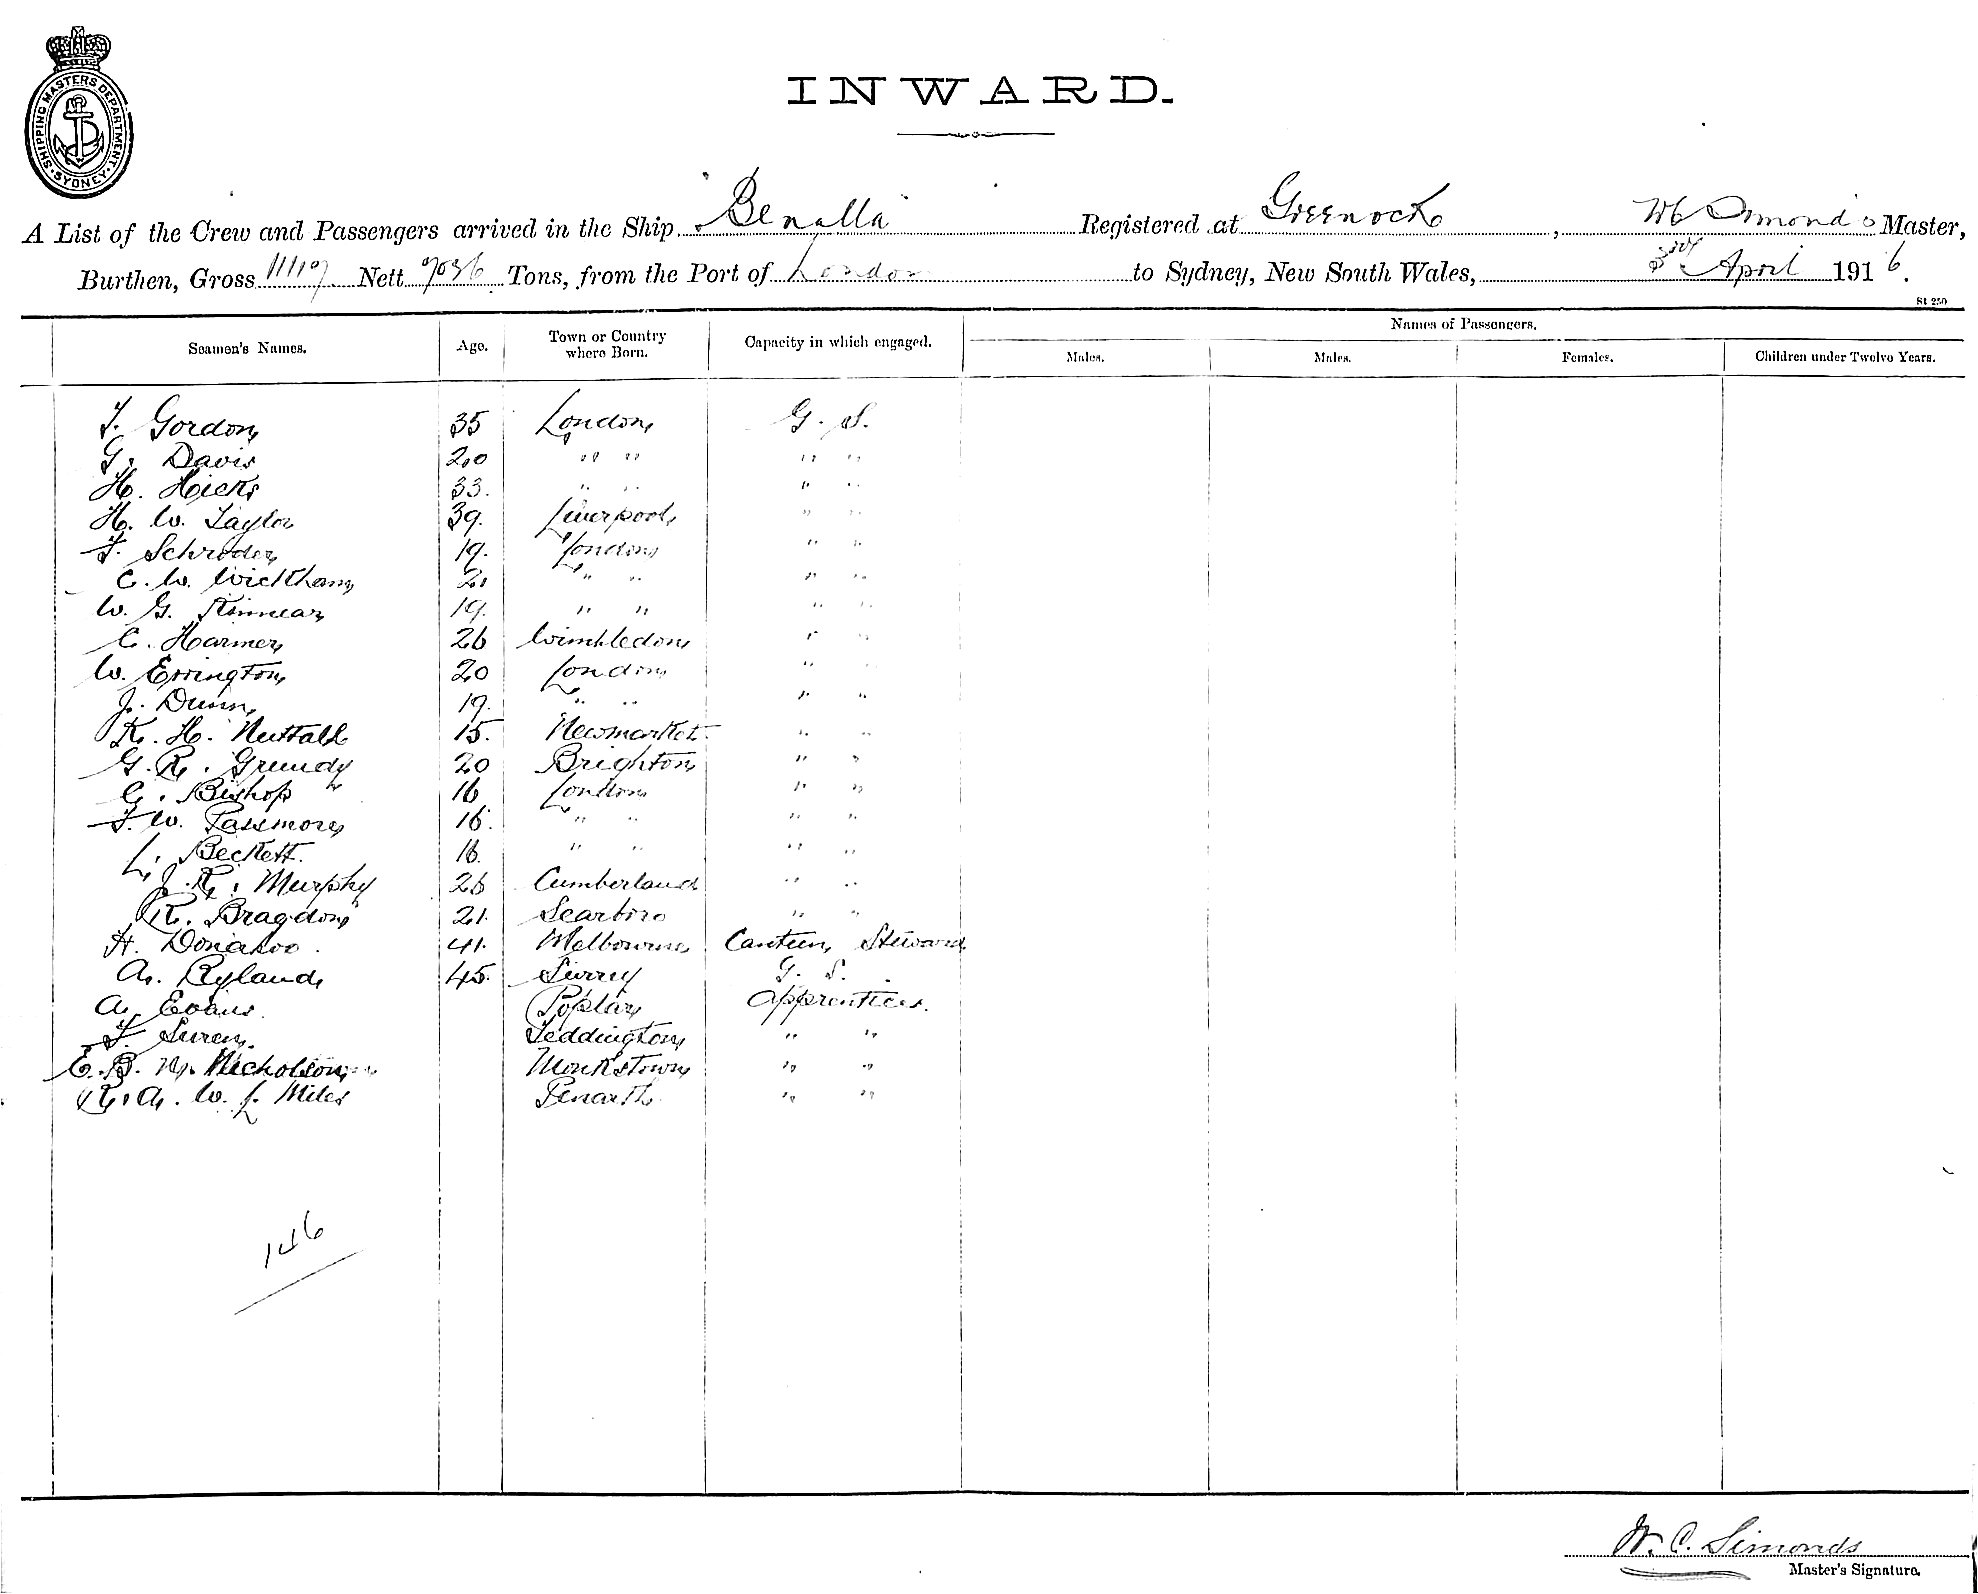 SHIPPING MASTERS DEPARTMENT · SYDNEY ·
INWARD.
A List of the Crew and Passengers arrived in the Ship Benalla Registered at Greenock, W C Simonds Master,
Burthen, Gross 11119 Nett 7036 Tons, from the Port of London to Sydney, New South Wales, 3rd April 1916.
St 250
Seamen's Names. Age. Town or Country where Born. Capacity in which engaged. Names of Passengers.
Males. Males. Females. Children under Twelve Years.
T. Gordon 35 London G. S.
G. Davis 20 " " " "
H. Hicks 33. " " " "
H. W. Taylor 39. Liverpool " "
F. Schroder 19. London " "
C. W. Wickham 21 " " " "
W. G. Kinnear 19. " " " "
C. Harmer 26 Wimbledon " "
W. Errington 20 London " "
J. Dunn 19. " " " "
K. H. Nuttall 15. Newmarket " "
G. R. Grundy 20 Brighton " "
G. Bishop 16 London " "
F. W. Passmore 16. " " " "
L. Beckett. 16. " " " "
J. R. Murphy 26 Cumberland " "
R. Bragdon 21. Scarboro " "
H. Donahoo. 41. Melbourne Canteen Steward
A. Ryland 45. Surrey G. S.
A. Evans. Poplar Apprentices.
F. Suren. Teddington " "
E. B. M. Nicholson Monkstown " "
R. A. W. L. Miles Penarth " "
146
W. C. Simonds
Master's Signature.